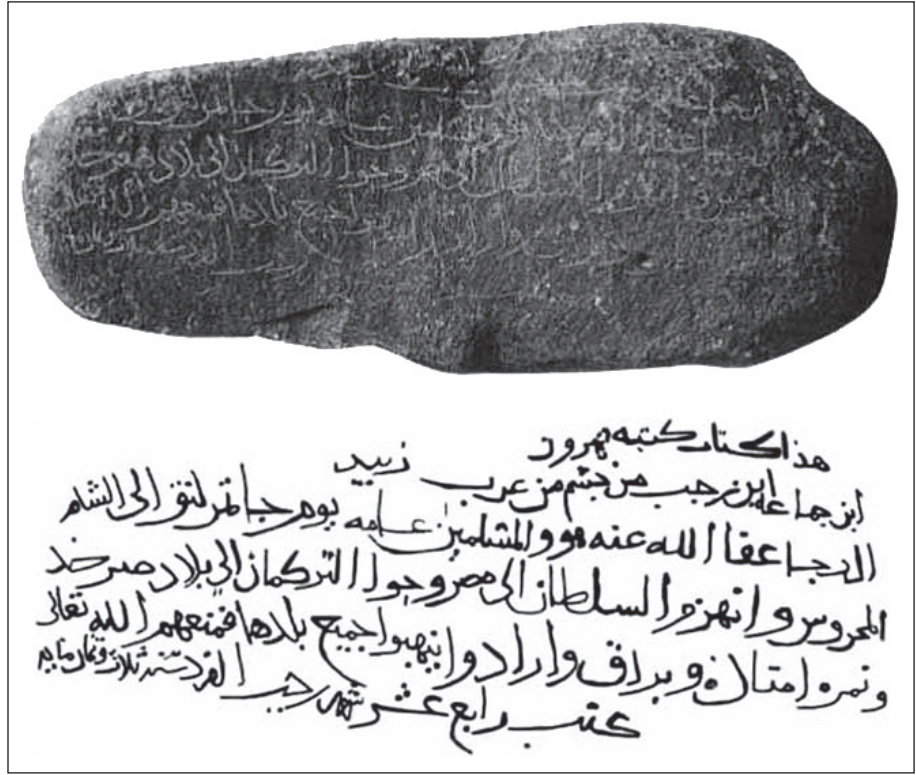 هذا كتاب كتبه نهرون
ابن جماعه ابن رجب من جشم من عرب زبيد
الدجا عفا الله عنه هو والمسلمين عامه يوم جا تمرلنق الى الشام
المحروس وانهزم السلطان الى مصر وجوا التركمان الى بلاد صرخد
ونمره امتان وبراق وارادوا ينهبوا جميع بلادها فمنعهم الله تعالى
كتب رابع عشر شهر رجب الفرد سنة ثلاث وثمان مايه